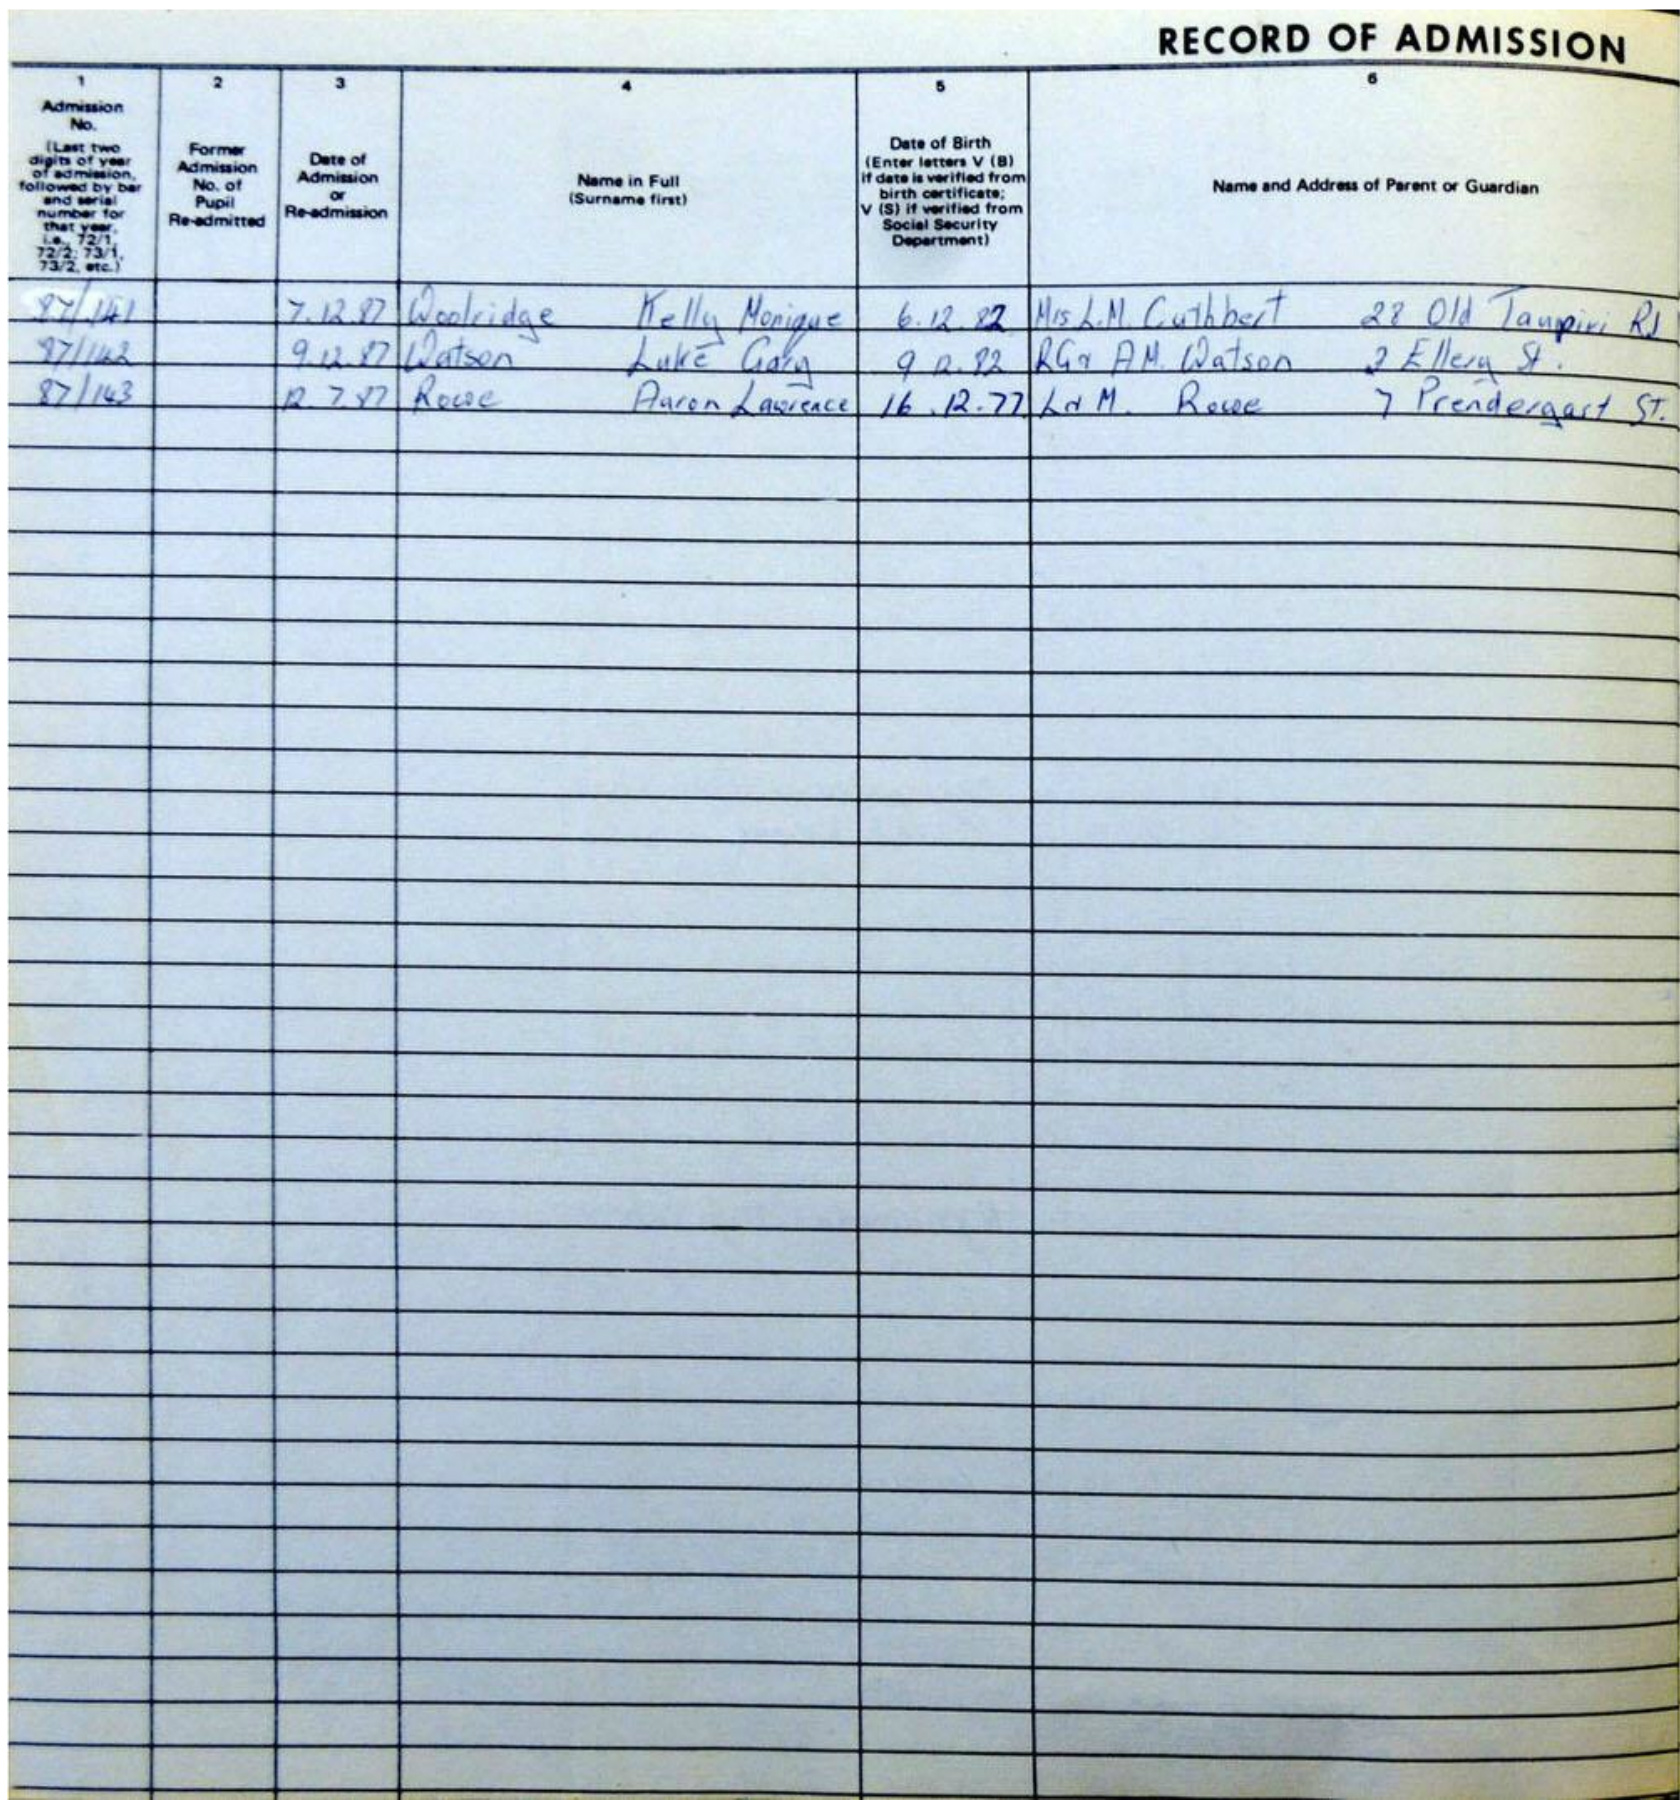 RECORD OF ADMISSION
1 2 3 4 5 6
Admission No. (Last two digits of year of admission, followed by bar and serial number for that year, i.e., 72/1, 72/2; 73/1, 73/2, etc.)
Former Admission No. of Pupil Re-admitted
Date of Admission or Re-admission
Name in Full (Surname first)
Date of Birth (Enter letters V (B) if date is verified from birth certificate; V (S) if verified from Social Security Department)
Name and Address of Parent or Guardian
87/141 7.12.87 Woolridge Kelly Monique 6.12.82 Mrs L.M. Cuthbert 28 Old Taupiri Rd
87/142 9.12.87 Watson Luke Gary 9.12.82 RG & A.M. Watson 2 Ellery St.
87/143 12.7.87 Rowe Aaron Lawrence 16.12.77 L & M. Rowe 7 Prendergast St.